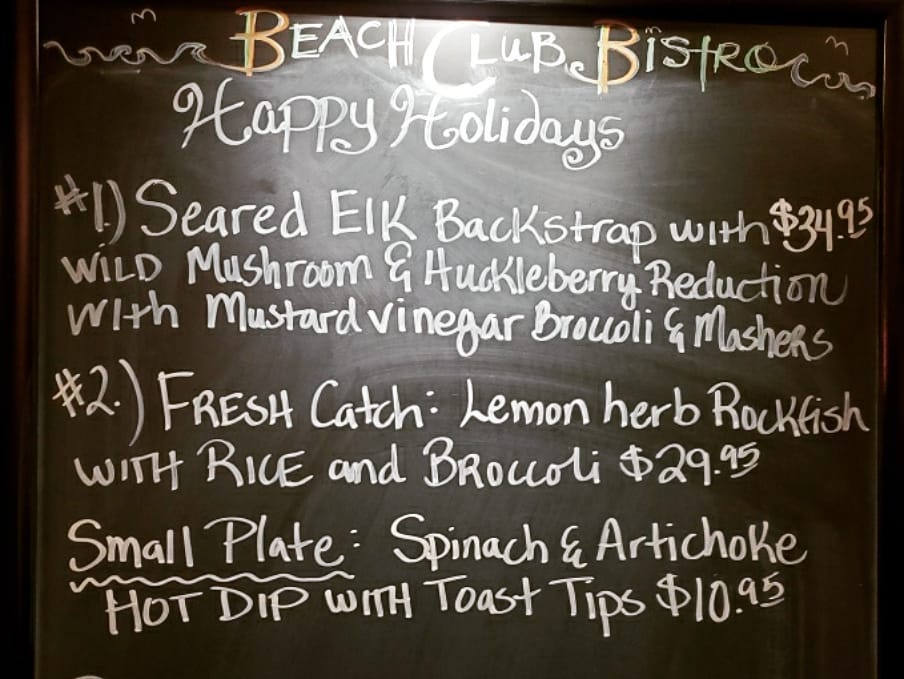 BEACH CLUB BISTRO
Happy Holidays
#1.) Seared Elk Backstrap with $34.95
WILD Mushroom & Huckleberry Reduction
With Mustard vinegar Broccoli & Mashers
#2.) FRESH Catch: Lemon herb Rockfish
WITH RICE and BROCCOLI $29.95
Small Plate: Spinach & Artichoke
HOT DIP WITH Toast Tips $10.95